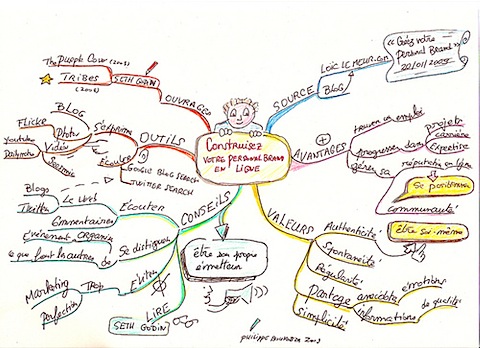 Construisez
votre personal Brand
en ligne
SOURCE
LOÏC LEMEUR.com
Blog
« Gérez votre
Personal Brand »
AVANTAGES
trouver un emploi
progresser dans
projets
carrière
Expertise
gérer sa
réputation en ligne
Se positionner
communauté
VALEURS
Authenticité
être soi-même
Spontanéité
Régularité
Partage
anecdotes
émotions
informations
de qualité
simplicité
CONSEILS
Ecouter
Blogs
Twitter
Le Web
Commentaires
Se distinguer
événement
ce que font les autres
Eviter
Trop
Marketing
Perfection
LIRE
SETH GODIN
être son propre
émetteur
OUTILS
S'exprimer
BLOG
Photo
Flickr
Vidéo
youtube
Ecouter
GOOGLE BLOG SEARCH
TWITTER SEARCH
OUVRAGES
SETH GODIN
The Purple Cow
TRIBES